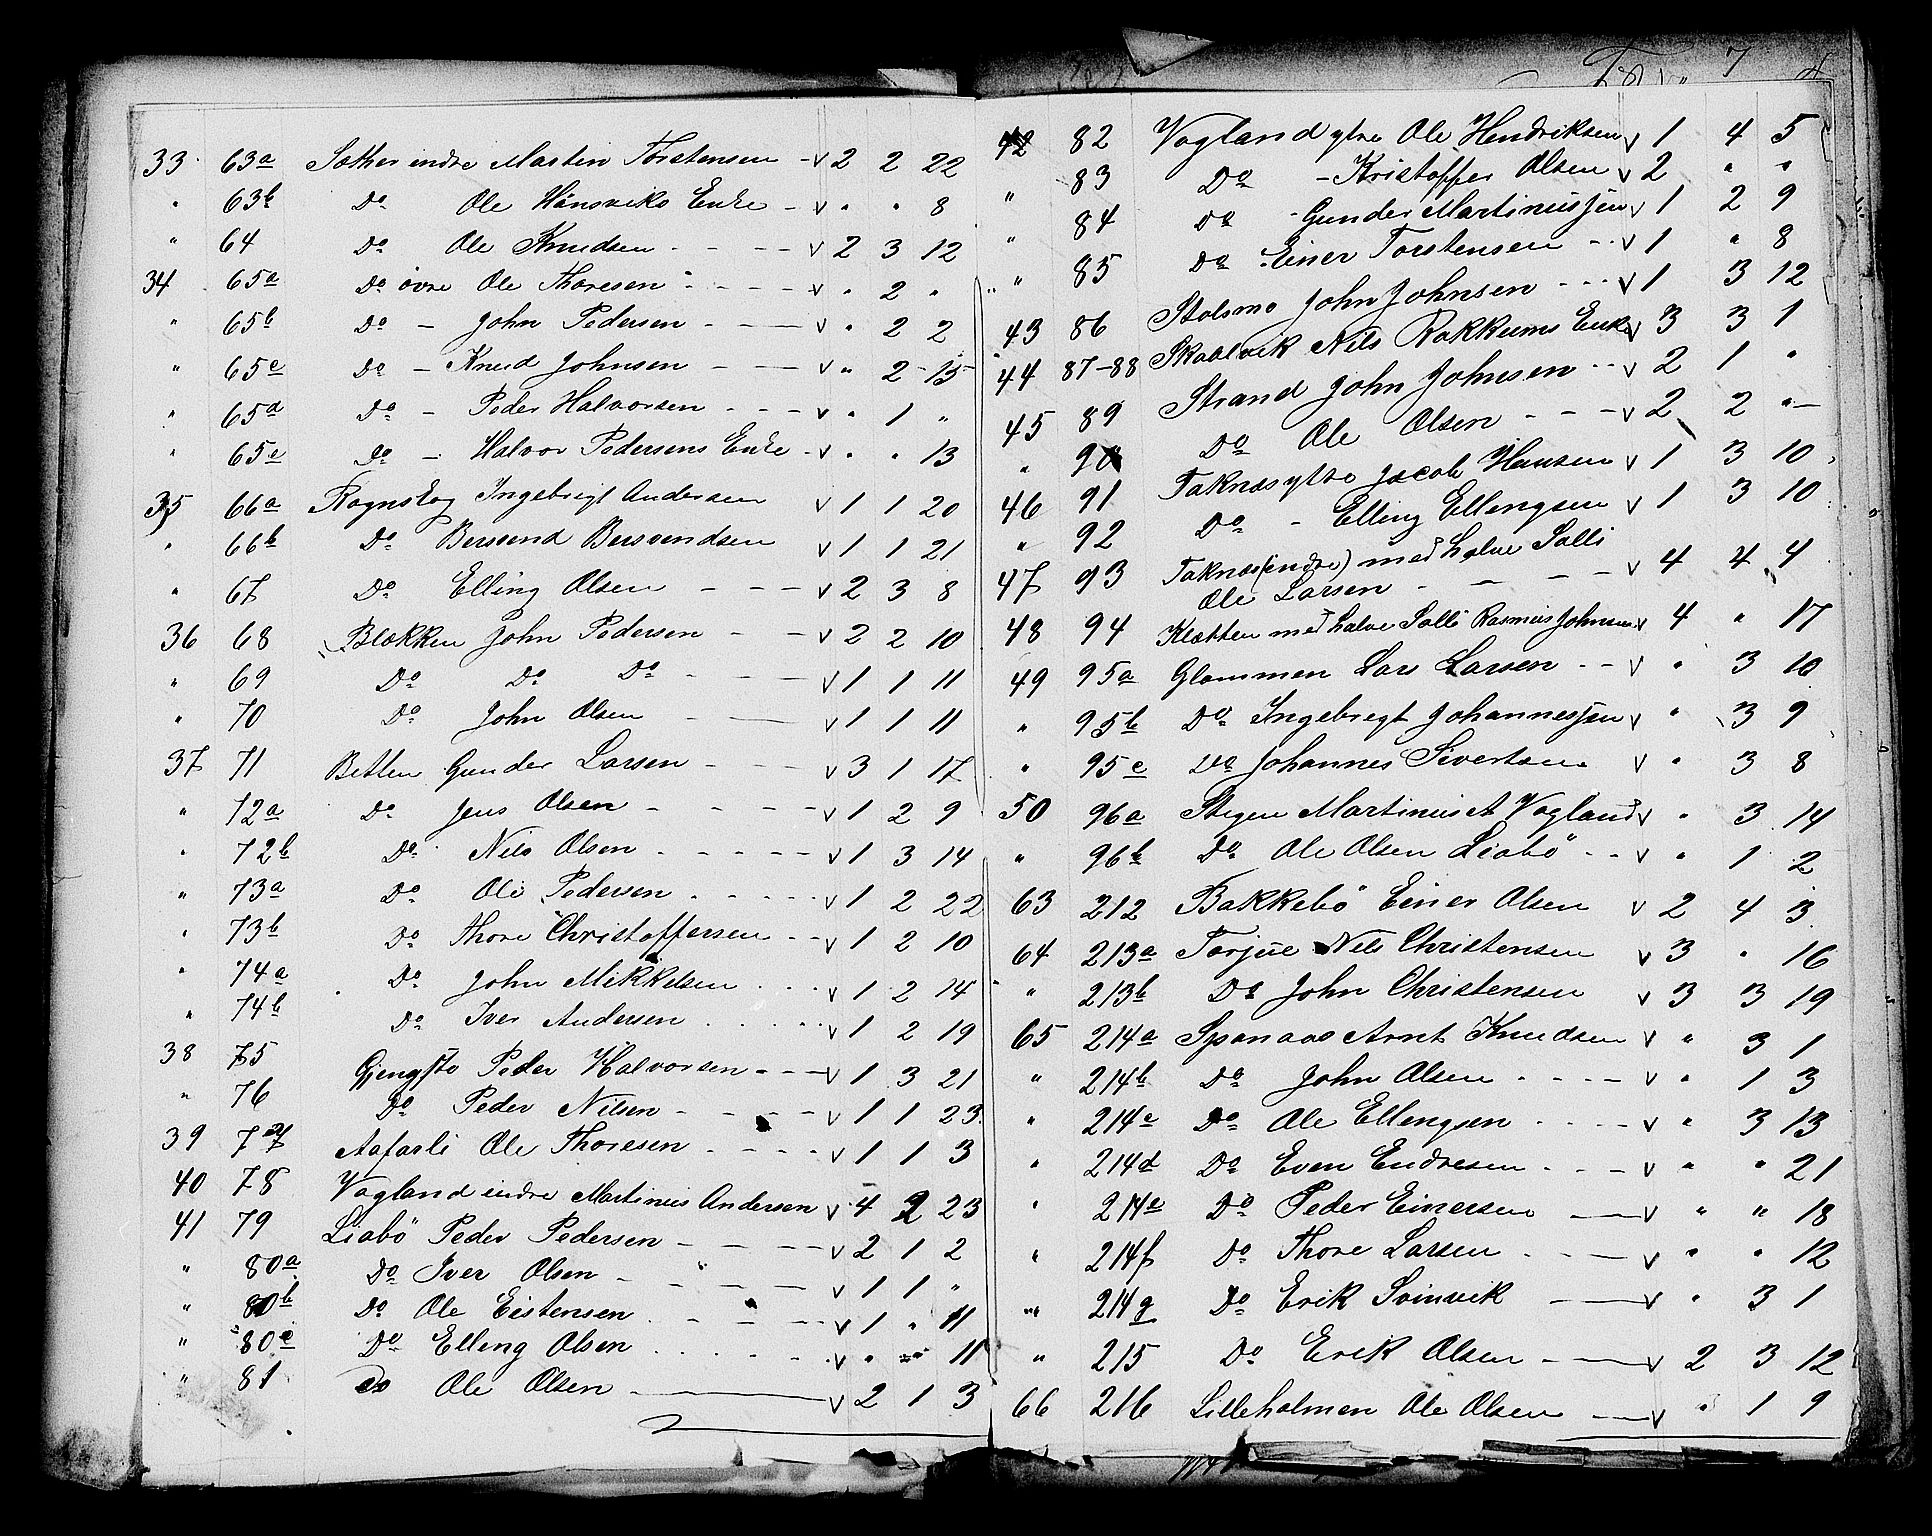 33 63a Sæther indre Martin Torstensen - v 2 2 22
" 63b Do Ole Hønsviks Enke - v " " 8
" 64 Do Ole Knudsen - - - v 2 3 12
34 65a Do øvre Ole Thoresen - - - v " 2 "
" 65b Do - John Pedersen - - v " 2 2
" 65c Do - Knud Johnsen - - v " 2 15
" 65d Do - Peder Halvorsen - - - v " 1 "
" 65e Do - Halvor Pedersens Enke - v " " 13
35 66a Rognskog Ingebrigt Andersen v 1 1 20
" 66b Do Bersvend Bersvendsen v 1 1 21
" 67 Do Elling Olsen - - - v 2 3 8
36 68 Blekken John Pedersen - - v 2 2 10
" 69 Do Do Do - - - v 1 1 11
" 70 Do John Olsen - - v 1 1 11
37 71 Betten Gunder Larsen - - - v 3 1 17
" 72a Do Jens Olsen - - - - v 1 2 9
" 72b Do Nils Olsen - - - - v 1 3 14
" 73a Do Ole Pedersen - - - - v 1 2 22
" 73b Do Thore Christoffersen - - v 1 2 10
" 74a Do John Mikkelsen - - - v 1 2 14
" 74b Do Iver Andersen - - - - v 1 2 19
38 75 Gjengstø Peder Halvorsen - - - v 1 3 21
" 76 Do Peder Nilsen - - - - v 1 1 23
39 77 Aafarli Ole Thoresen - - - - v 1 1 3
40 78 Vagland indre Martinus Andersen v 4 2 23
41 79 Liabö Peder Pedersen - - - - v 2 1 2
" 80a Do Iver Olsen - - - v 1 1 "
" 80b Do Ole Eistensen - - - - v 1 " 11
" 80c Do Elling Olsen - - - - v " " 11
" 81 Do Ole Olsen - v 2 1 3
42 82 Vagland ytre Ole Hendriksen v 1 4 5
" 83 Do - Kristoffer Olsen v 2 " "
" 84 Do - Gunder Martinussen v 1 2 9
" 85 Do Einer Torstensen - - v 1 " 8
43 86 Stolsmo John Johnsen - - - v 1 3 12
44 87-88 Skaalvik Nils Rokkums Enke v 3 3 1
45 89 Strand John Johnsen - - v 2 1 "
" 90 Do Ole Olsen - - - v 2 2 "
46 91 Taknæs ytre Jacob Hansen v 1 3 10
" 92 Do - Elling Ellengsen v 1 3 10
47 93 Taknæs (indre) med halve Salli
Ole Larsen - - - - v 4 4 4
48 94 Kletten med halve Salli Rasmus Johnsen v 4 " 17
49 95a Glommen Lars Larsen - - v " 3 10
" 95b Do Ingebregt Johannessen v " 3 9
" 95c Do Johannes Sivertsen v " 3 8
50 96a Stegen Martinus et Vagland v " 3 14
" 96b Do Ole Olsen Liabö - - v " 1 2
63 212 Bakkebö Einer Olsen v 2 4 3
64 213a Torjul Nils Christensen v 3 " 16
" 213b Do John Christensen v 3 3 19
65 214a Spanaas Arnt Knudsen v " 3 1
" 214b Do John Olsen - - - - v " 1 3
" 214c Do Ole Ellengsen - - - - v " 3 13
" 214d Do Even Endresen - - - v " " 21
" 214e Do Peder Einersen - v " " 18
" 214f Do Thore Larsen - - - - v " " 12
" 214g Do Erik Svinvik - v " 3 1
" 215 Do Erik Olsen - - v 2 3 12
66 216 Lilleholmen Ole Olsen - v " 1 9